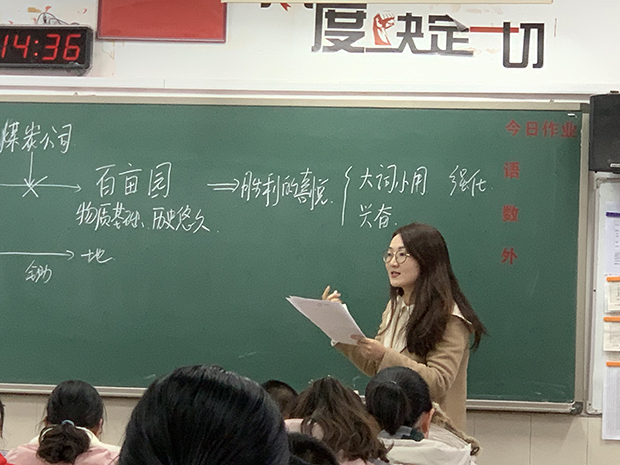 14:36
度决定一切
煤炭公司
百亩园 ⇒ 胜利的喜悦 { 大词小用 强化
物质基础、历史悠久 兴奋
资助 地
今日作业
语
数
外